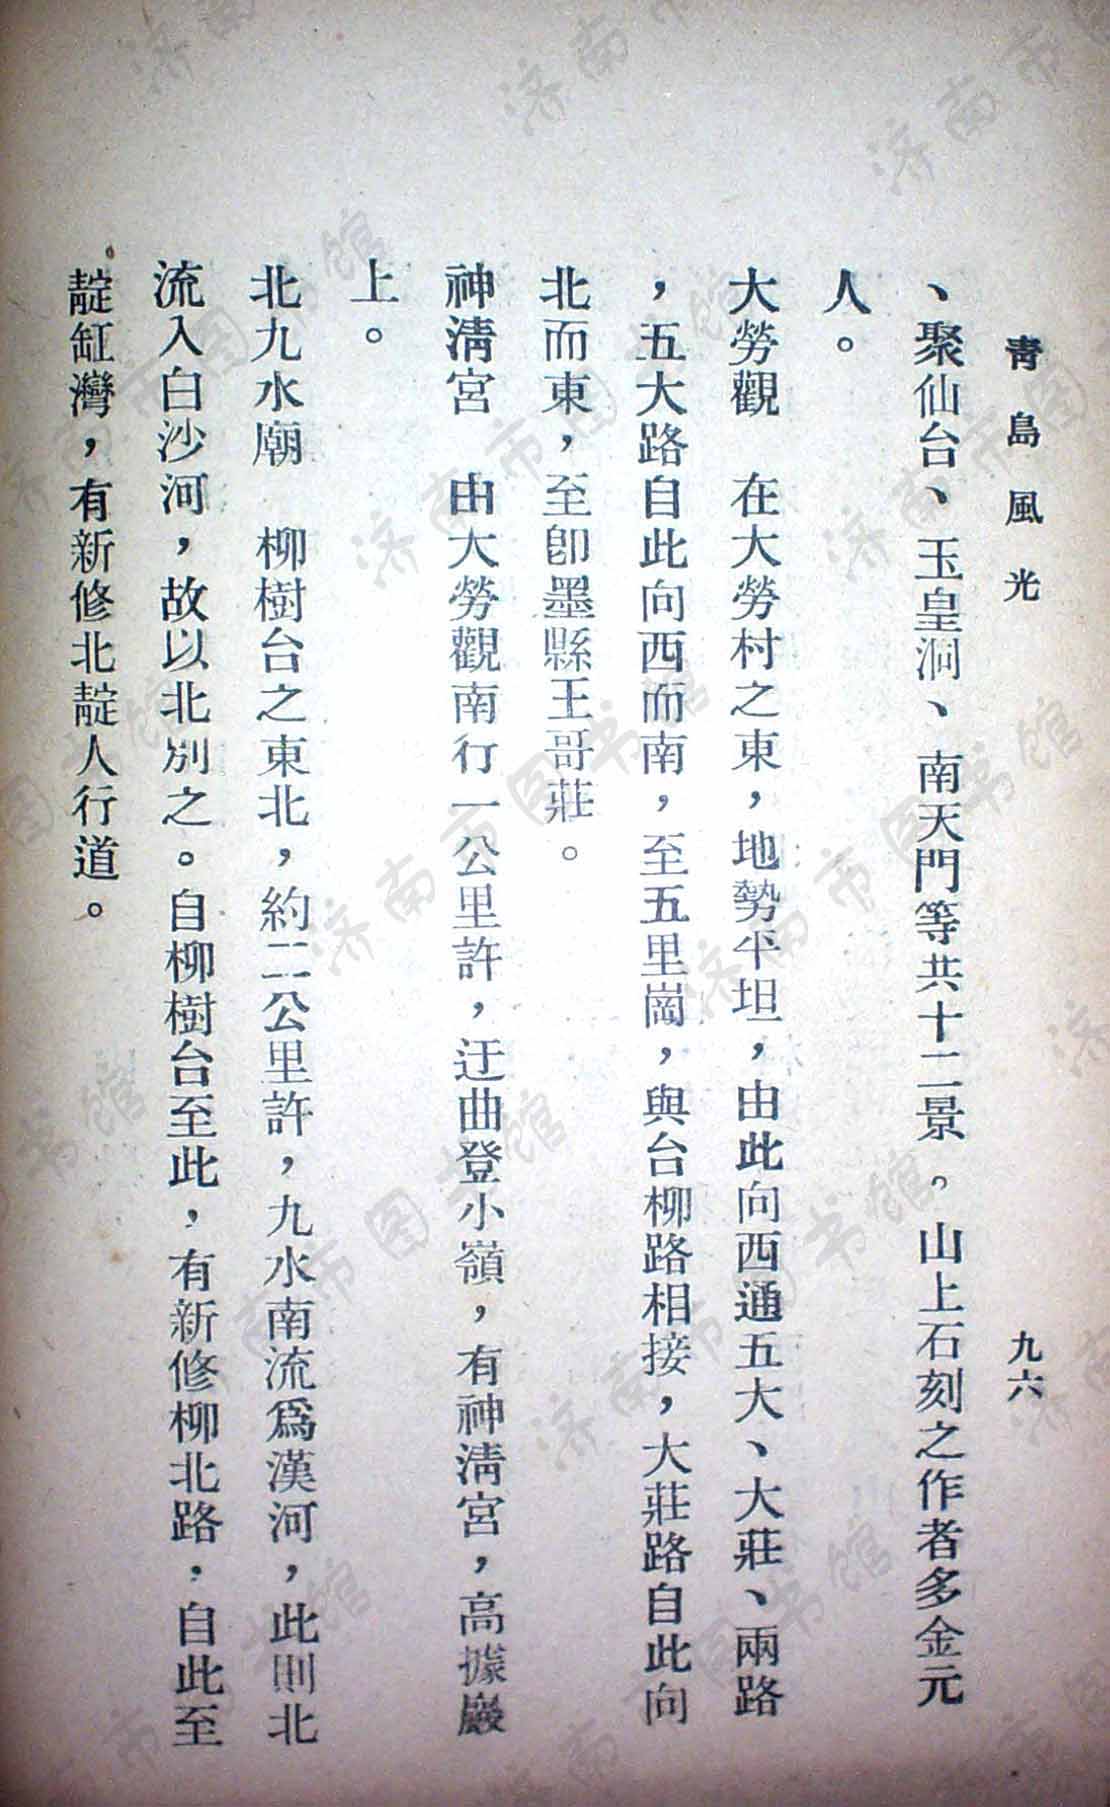 青島風光
九六
、聚仙台、玉皇洞、南天門等共十二景。山上石刻之作者多金元
人。
大勞觀　在大勞村之東，地勢平坦，由此向西通五大、大莊、兩路
，五大路自此向西而南，至五里崗，與台柳路相接，大莊路自此向
北而東，至卽墨縣王哥莊。
神淸宮　由大勞觀南行一公里許，迂曲登小嶺，有神淸宮，高據巖
上。
北九水廟　柳樹台之東北，約二公里許，九水南流爲漢河，此則北
流入白沙河，故以北別之。自柳樹台至此，有新修柳北路，自此至
靛缸灣，有新修北靛人行道。
济南市图书馆